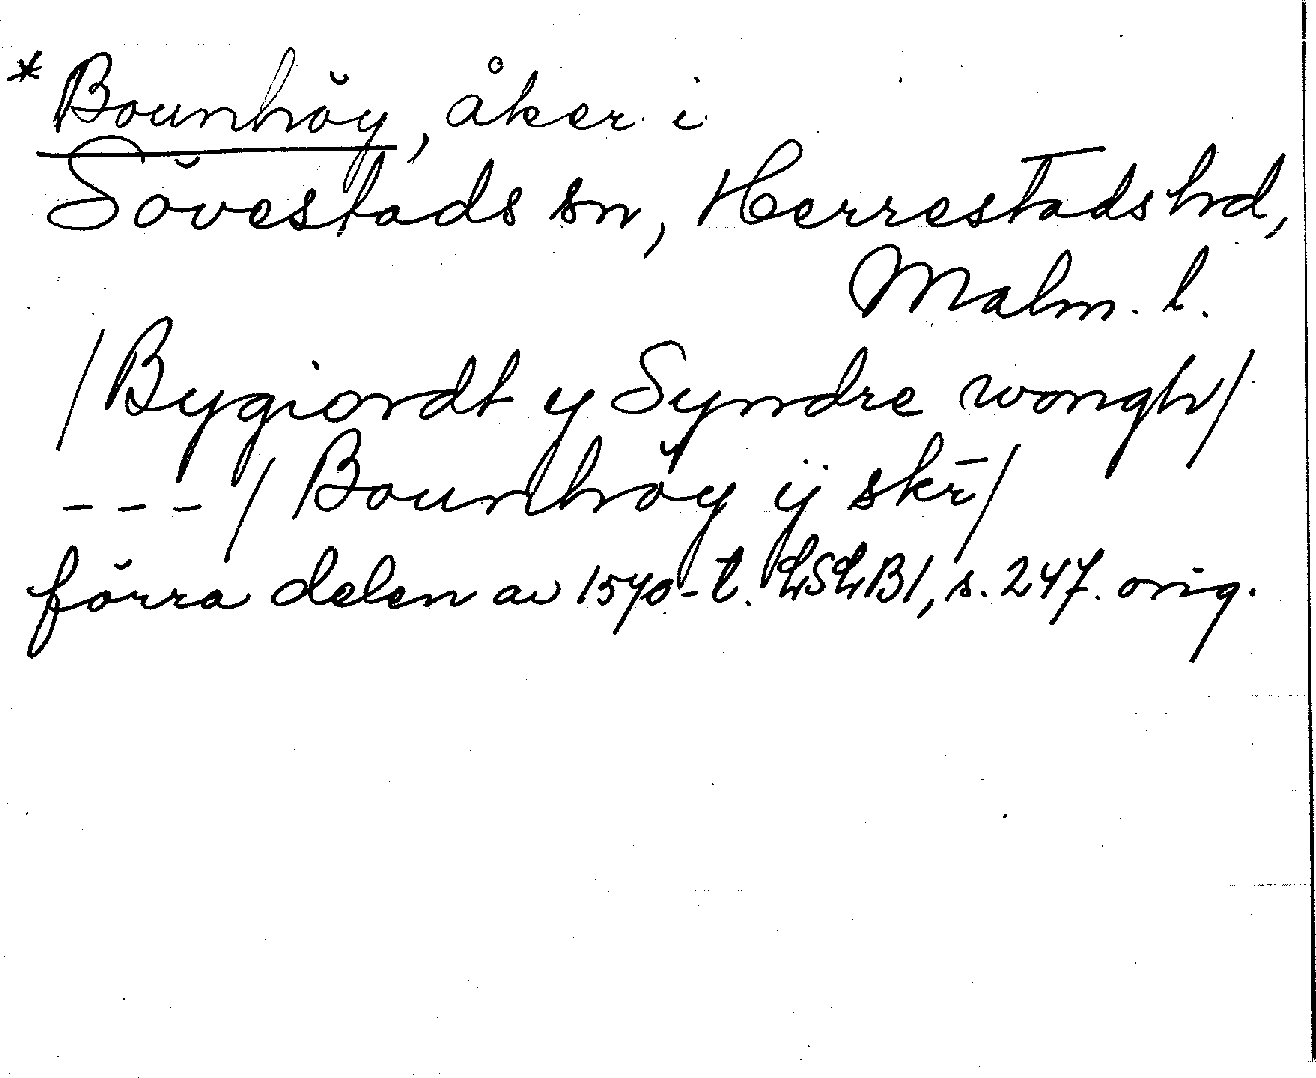 *Bounhöy, åker i
Sövestads sn, Herrestads hd,
Malm. l.
/Bygiordt y Syndre wongh/
--- / Bounhöy ij skr̄/
förra delen av 1570-t. LSLB1, s. 247. orig.